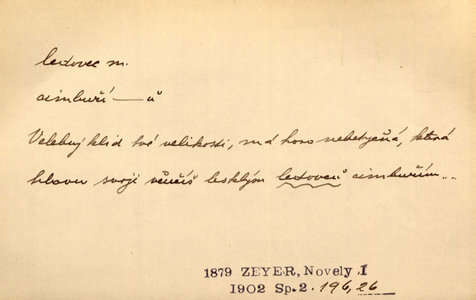 ledovec m.
cimbuří — ů
Velebný klid tvé velikosti, má horo nebetyčná, která
hlavu svoji věnčíš lesklým ledovců cimbuřím...
1879 ZEYER, Novely I
1902 Sp. 2. 196, 26